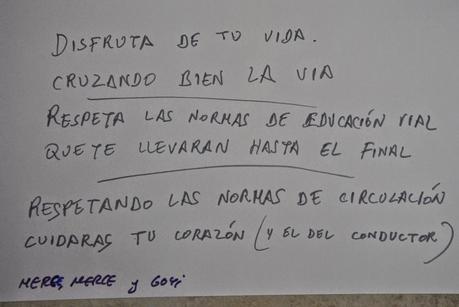 DISFRUTA DE TU VIDA.
CRUZANDO BIEN LA VIA
RESPETA LAS NORMAS DE EDUCACIÓN VIAL
QUE TE LLEVARAN HASTA EL FINAL
RESPETANDO LAS NORMAS DE CIRCULACIÓN
CUIDARAS TU CORAZÓN (Y EL DEL CONDUCTOR)
MERCE y